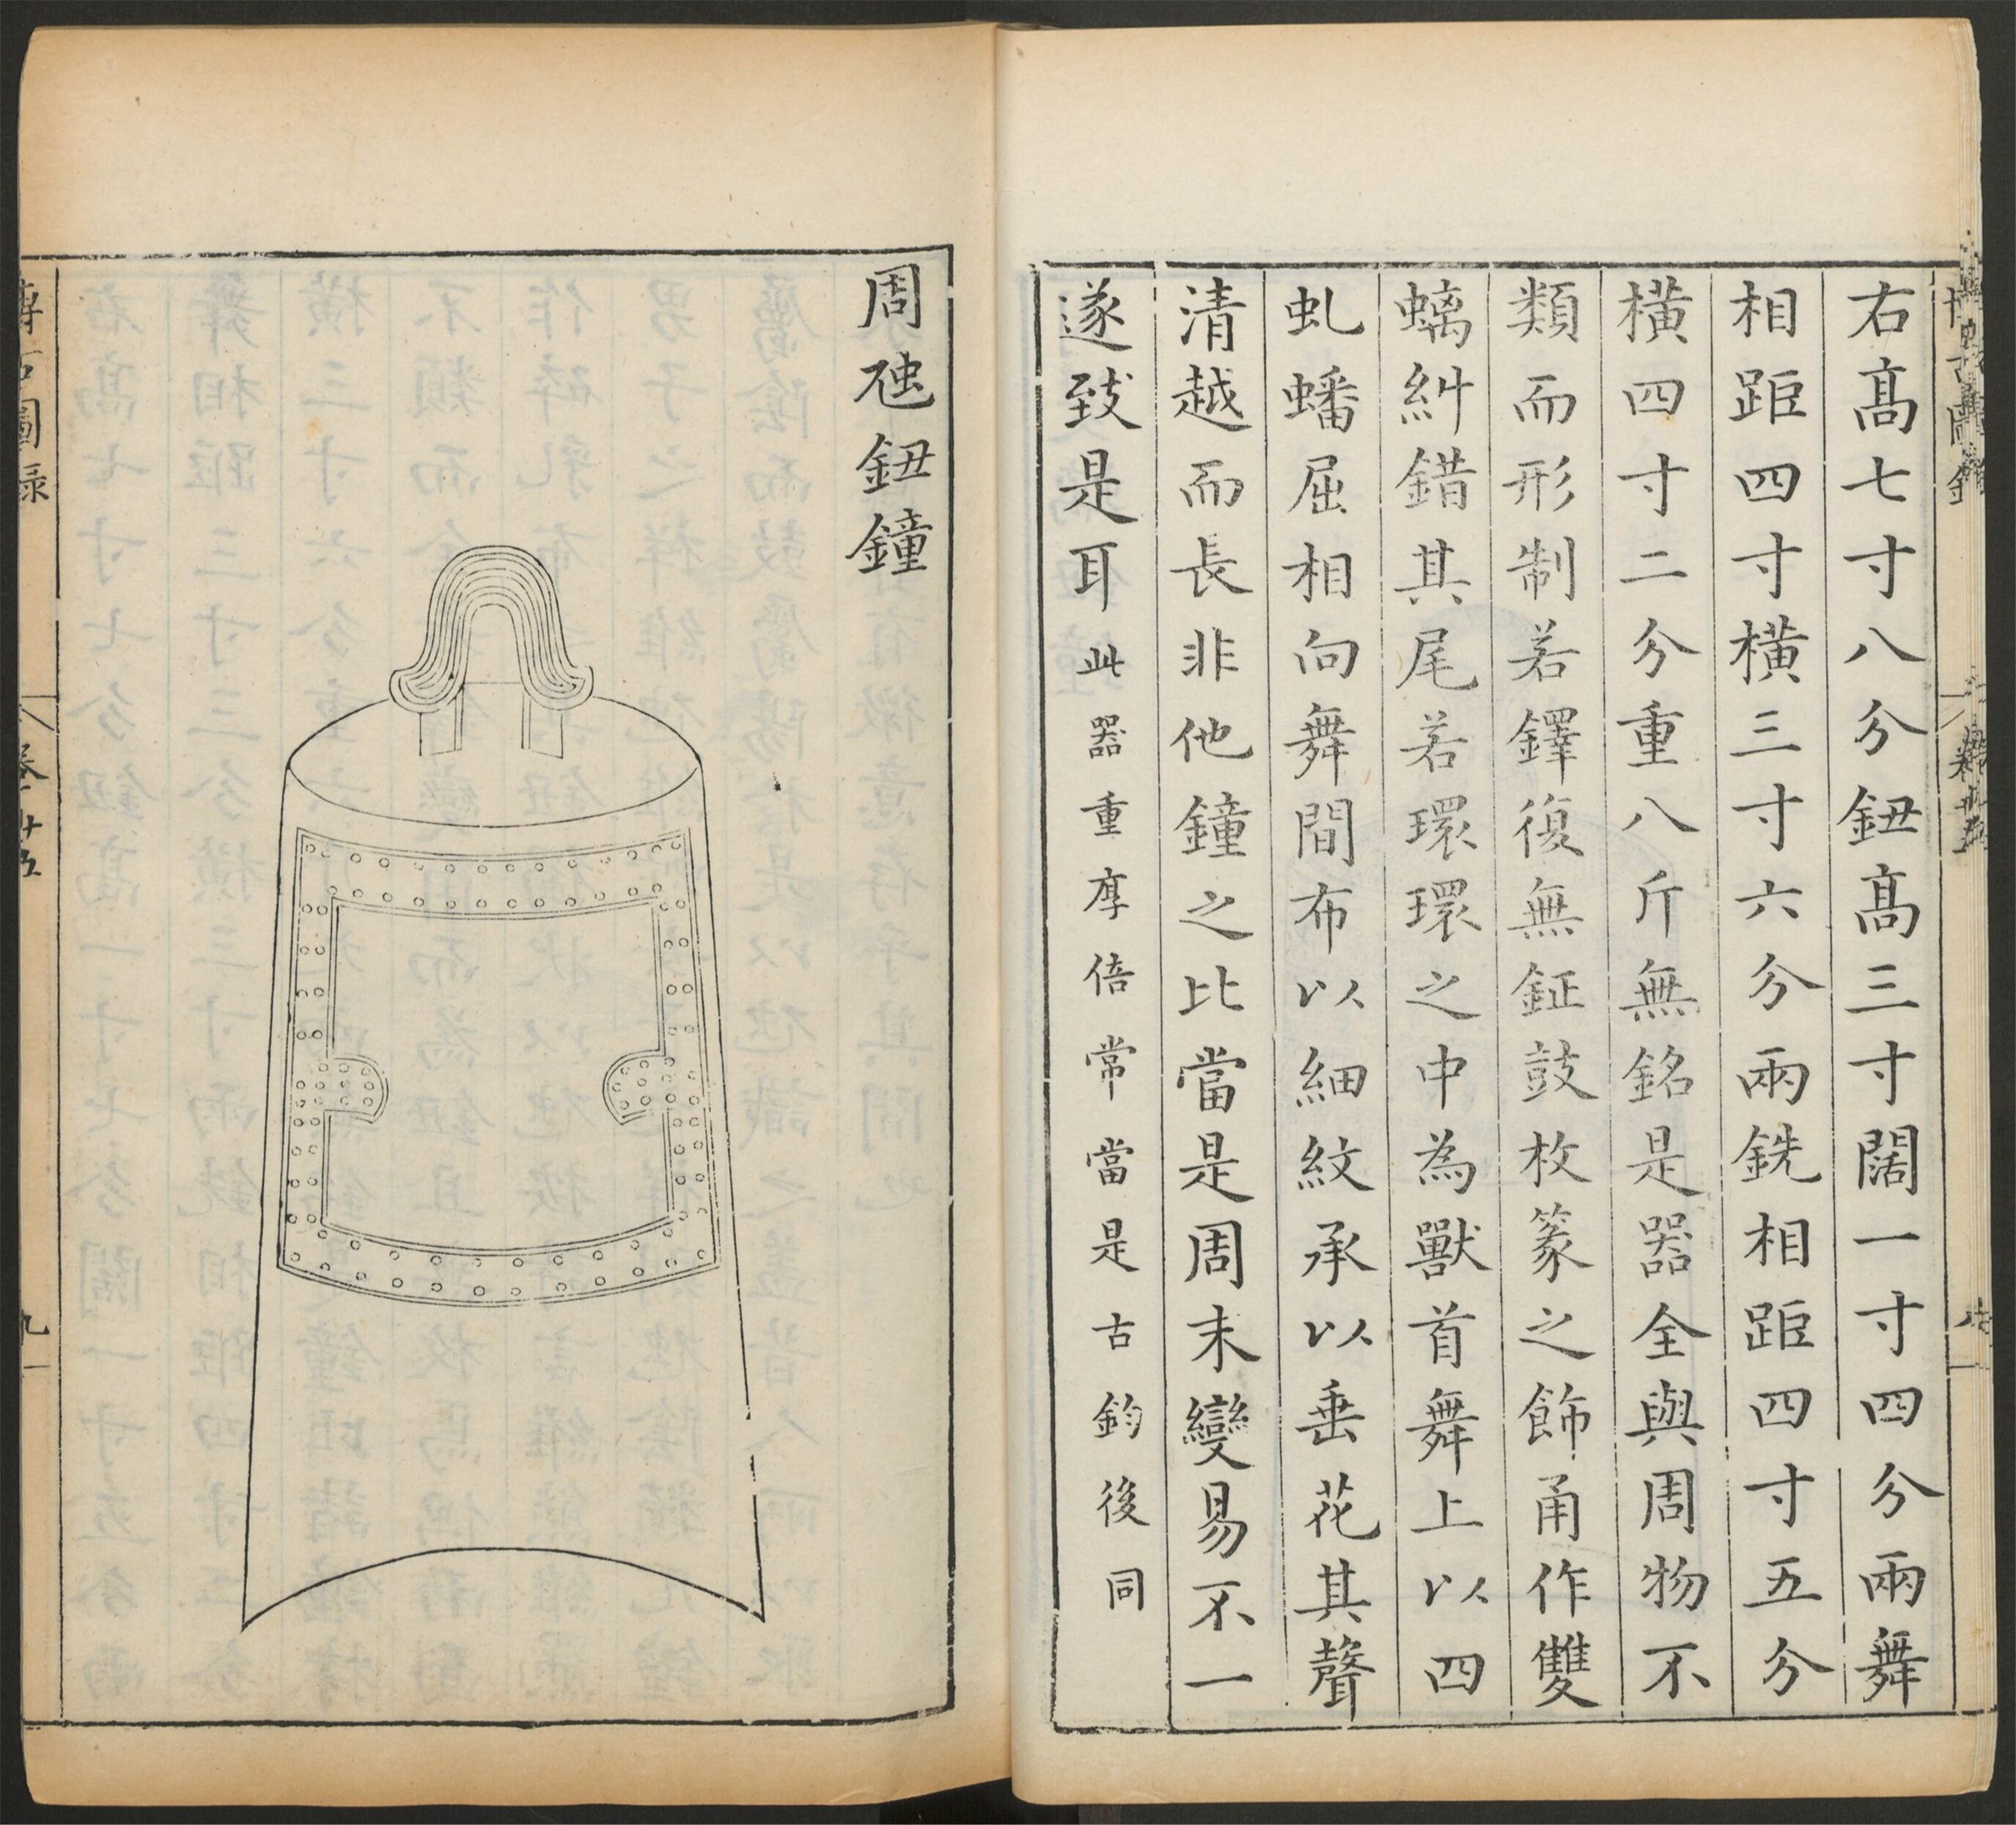 右高七寸八分鈕高三寸闊一寸四分兩舞
相距四寸橫三寸六分兩銑相距四寸五分
橫四寸二分重八斤無銘是器全與周物不
類而形制若鐸復無鉦鼓枚篆之飾甬作雙
螭糾錯其尾若環環之中為獸首舞上以四
虬蟠屈相向舞間布以細紋承以垂花其聲
清越而長非他鐘之比當是周末變易不一
遂致是耳此器重厚倍常當是古鈞後同
周虺鈕鐘
博古圖錄
卷廿五
九